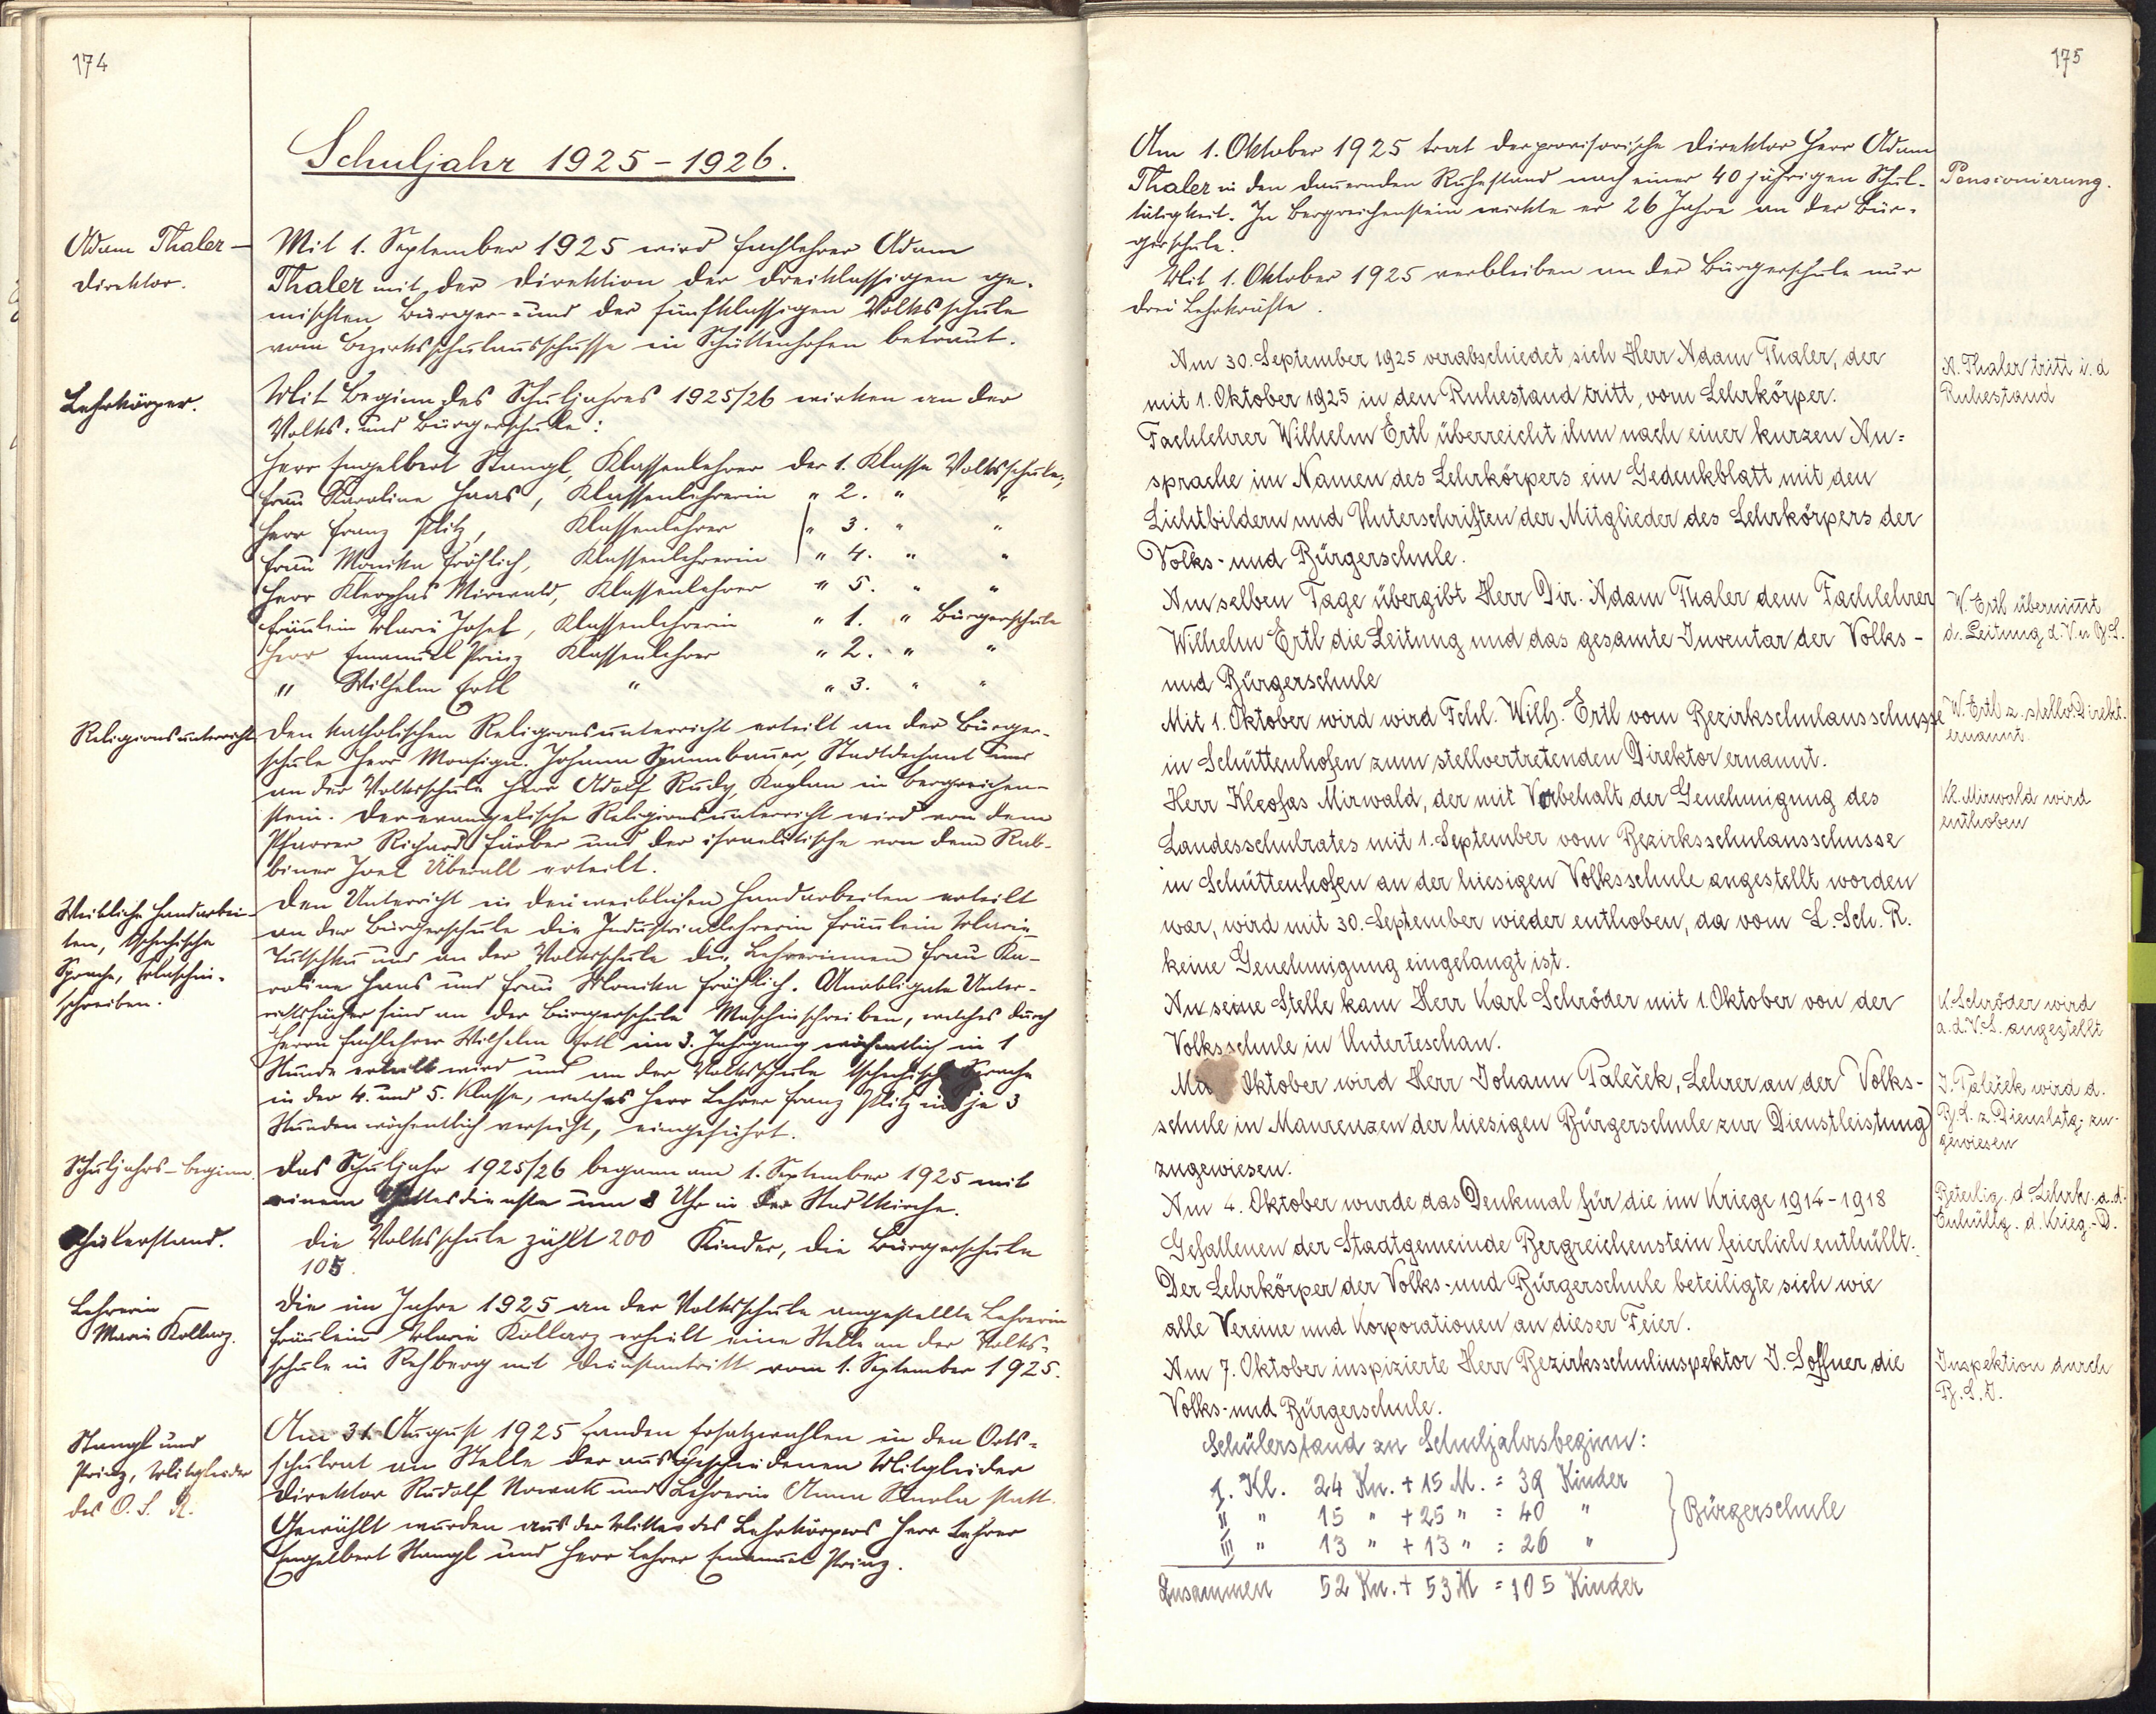 174
Schuljahr 1925-1926.
Adam Thaler –
Direktor.
Mit 1. September 1925 wird Fachlehrer Adam
Thaler mit der Direktion der dreiklassigen ge-
mischten Bürger- und der fünfklassigen Volksschule
vom Bezirksschulausschusse in Schüttenhofen betraut.
Lehrkörper.
Mit Beginn des Schuljahres 1925/26 wirken an der
Volks- und Bürgerschule:
Herr Engelbert Stangl, Klassenlehrer der 1. Klasse Volksschule,
Frau Karoline Haas, Klassenlehrerin " 2. " "
Herr Franz Plitz, Klassenlehrer " 3. " "
Frau Monika Fröhlich, Klassenlehrerin " 4. " "
Herr Kleophas Mirwald, Klassenlehrer " 5. " "
Fräulein Marie Josef, Klassenlehrerin " 1. " Bürgerschule
Herr Emanuel Prinz Klassenlehrer " 2. " "
" Wilhelm Ertl " " 3. " "
Religionsunterricht
Den katholischen Religionsunterricht erteilt an der Bürger-
schule Herr Monsign. Johann Spannbauer, Stadtdechant und
an der Volksschule Herr Adolf Rudy, Kaplan in Bergreichen-
stein. Der evangelische Religionsunterricht wird von dem
Pfarrer Richard Färber und der israelitische von dem Rab-
biner Joel Überall erteilt.
Weibliche Handarbei-
ten, tschechische
Sprache, Maschin-
schreiben.
Den Unterricht in den weiblichen Handarbeiten erteilt
an der Bürgerschule die Industrielehrerin Fräulein Marie
Tutschku und an der Volksschule die Lehrerinnen Frau Ka-
roline Haas und Frau Monika Fröhlich. Unobligate Unter-
richtsfächer sind an der Bürgerschule Maschinschreiben, welches durch
Herrn Fachlehrer Wilhelm Ertl im 3. Jahrgang wöchentlich in 1
Stunde erteilt wird und an der Volksschule tschechische Sprache
in der 4. und 5. Klasse, welches Herr Lehrer Franz Plitz in je 3
Stunden wöchentlich versieht, eingeführt.
Schuljahrs-beginn.
Das Schuljahr 1925/26 begann am 1. September 1925 mit
einem Gottesdienste um 8 Uhr in der Stadtkirche.
Schülerstand.
Die Volksschule zählt 200 Kinder, die Bürgerschule
105.
Lehrerin
Marie Kollarz.
Die im Jahre 1925 an der Volksschule angestellte Lehrerin
Fräulein Marie Kollarz erhielt eine Stelle an der Volks-
schule in Rehberg mit Dienstantritt vom 1. September 1925.
Stangl und
Prinz, Mitglieder
des O. S. R.
Am 31. August 1925 fanden Ersatzwahlen in den Orts-
schulrat an Stelle der ausgeschiedenen Mitglieder
Direktor Rudolf Nowak und Lehrerin Anna statt.
Gewählt wurden aus der Mitte des Lehrkörpers Herr Lehrer
Engelbert Stangl und Herr Lehrer Emanuel Prinz.
175
Am 1. Oktober 1925 trat der provisorische Direktor Herr Adam
Thaler in den dauernden Ruhestand nach einer 40 jährigen Schul-
tätigkeit. In Bergreichenstein wirkte er 26 Jahre an der Bür-
gerschule.
Pensionierung.
Mit 1. Oktober 1925 verbleiben an der Bürgerschule nur
drei Lehrkräfte.
Am 30. September 1925 verabschiedet sich Herr Adam Thaler, der
mit 1. Oktober 1925 in den Ruhestand tritt, vom Lehrkörper.
A. Thaler tritt i. d
Ruhestand
Fachlehrer Wilhelm Ertl überreicht ihm nach einer kurzen An-
sprache im Namen des Lehrkörpers ein Gedenkblatt mit den
Lichtbildern und Unterschriften der Mitglieder des Lehrkörpers der
Volks- und Bürgerschule.
Am selben Tage übergibt Herr Dir. Adam Thaler dem Fachlehrer
Wilhelm Ertl die Leitung und das gesamte Inventar der Volks-
und Bürgerschule
W. Ertl übernimmt
d. Leitung d. V. u B.S.
Mit 1. Oktober wird wird Fchl. Wilh. Ertl vom Bezirkschulausschusse
in Schüttenhofen zum stellvertretenden Direktor ernannt.
W. Ertl z. stellv. Direkt.
ernannt.
Herr Kleofas Mirwald, der mit Vorbehalt der Genehmigung des
Landesschulrates mit 1. September vom Bezirksschulausschusse
in Schüttenhofen an der hiesigen Volksschule angestellt worden
war, wird mit 30. September wieder enthoben, da vom L. Sch. R.
keine Genehmigung eingelangt ist.
Kl. Mirwald wird
enthoben
An seine Stelle kam Herr Karl Schröder mit 1. Oktober von der
Volksschule in Unterteschau.
K. Schröder wird
a. d. V.S. angestellt
Oktober wird Herr Johann Paleček, Lehrer an der Volks-
schule in Maurenzen der hiesigen Bürgerschule zur Dienstleistung
zugewiesen.
J. Paleček wird d.
B.S. z. Dienstlstg. zu-
gewiesen
Am 4. Oktober wurde das Denkmal für die im Kriege 1914-1918
Gefallenen der Stadtgemeinde Bergreichenstein feierlich enthüllt.
Der Lehrkörper der Volks- und Bürgerschule beteiligte sich wie
alle Vereine und Korporationen an dieser Feier.
Beteilig. d. Lehrk. a. d.
Enthüllg. d. Krieg.-D.
Am 7. Oktober inspizierte Herr Bezirksschulinspektor J. Soffner die
Volks- und Bürgerschule.
Inspektion durch
B.S.I.
Schülerstand zu Schuljahrsbeginn:
I. Kl. 24 Kn. + 15 M. = 39 Kinder
II " 15 " + 25 " = 40 "
III " 13 " + 13 " = 26 "
Bürgerschule
Zusammen 52 Kn. + 53 M = 105 Kinder